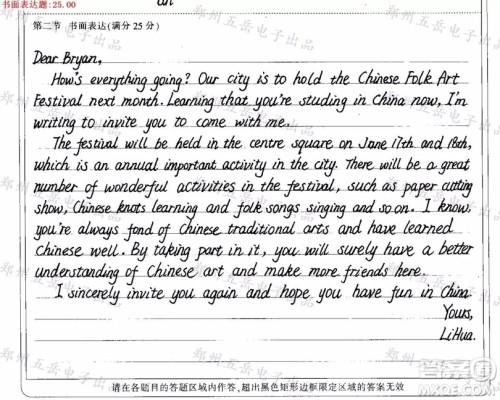 书面表达题:25.00
第二节 书面表达(满分25分)
Dear Bryan,
How's everything going? Our city is to hold the Chinese Folk Art
Festival next month. Learning that you're studing in China now, I'm
writing to invite you to come with me.
The festival will be held in the centre square on June 17th and 18th,
which is an annual important activity in the city. There will be a great
number of wonderful activities in the festival, such as paper cutting
show, Chinese knots learning and folk songs singing and so on. I know,
you're always fond of Chinese traditional arts and have learned
Chinese well. By taking part in it, you will surely have a better
understanding of Chinese art and make more friends here.
I sincerely invite you again and hope you have fun in China.
Yours,
Li Hua.
请在各题目的答题区域内作答,超出黑色矩形边框限定区域的答案无效
郑州五岳电子出品
答案圈
MXQE.COM